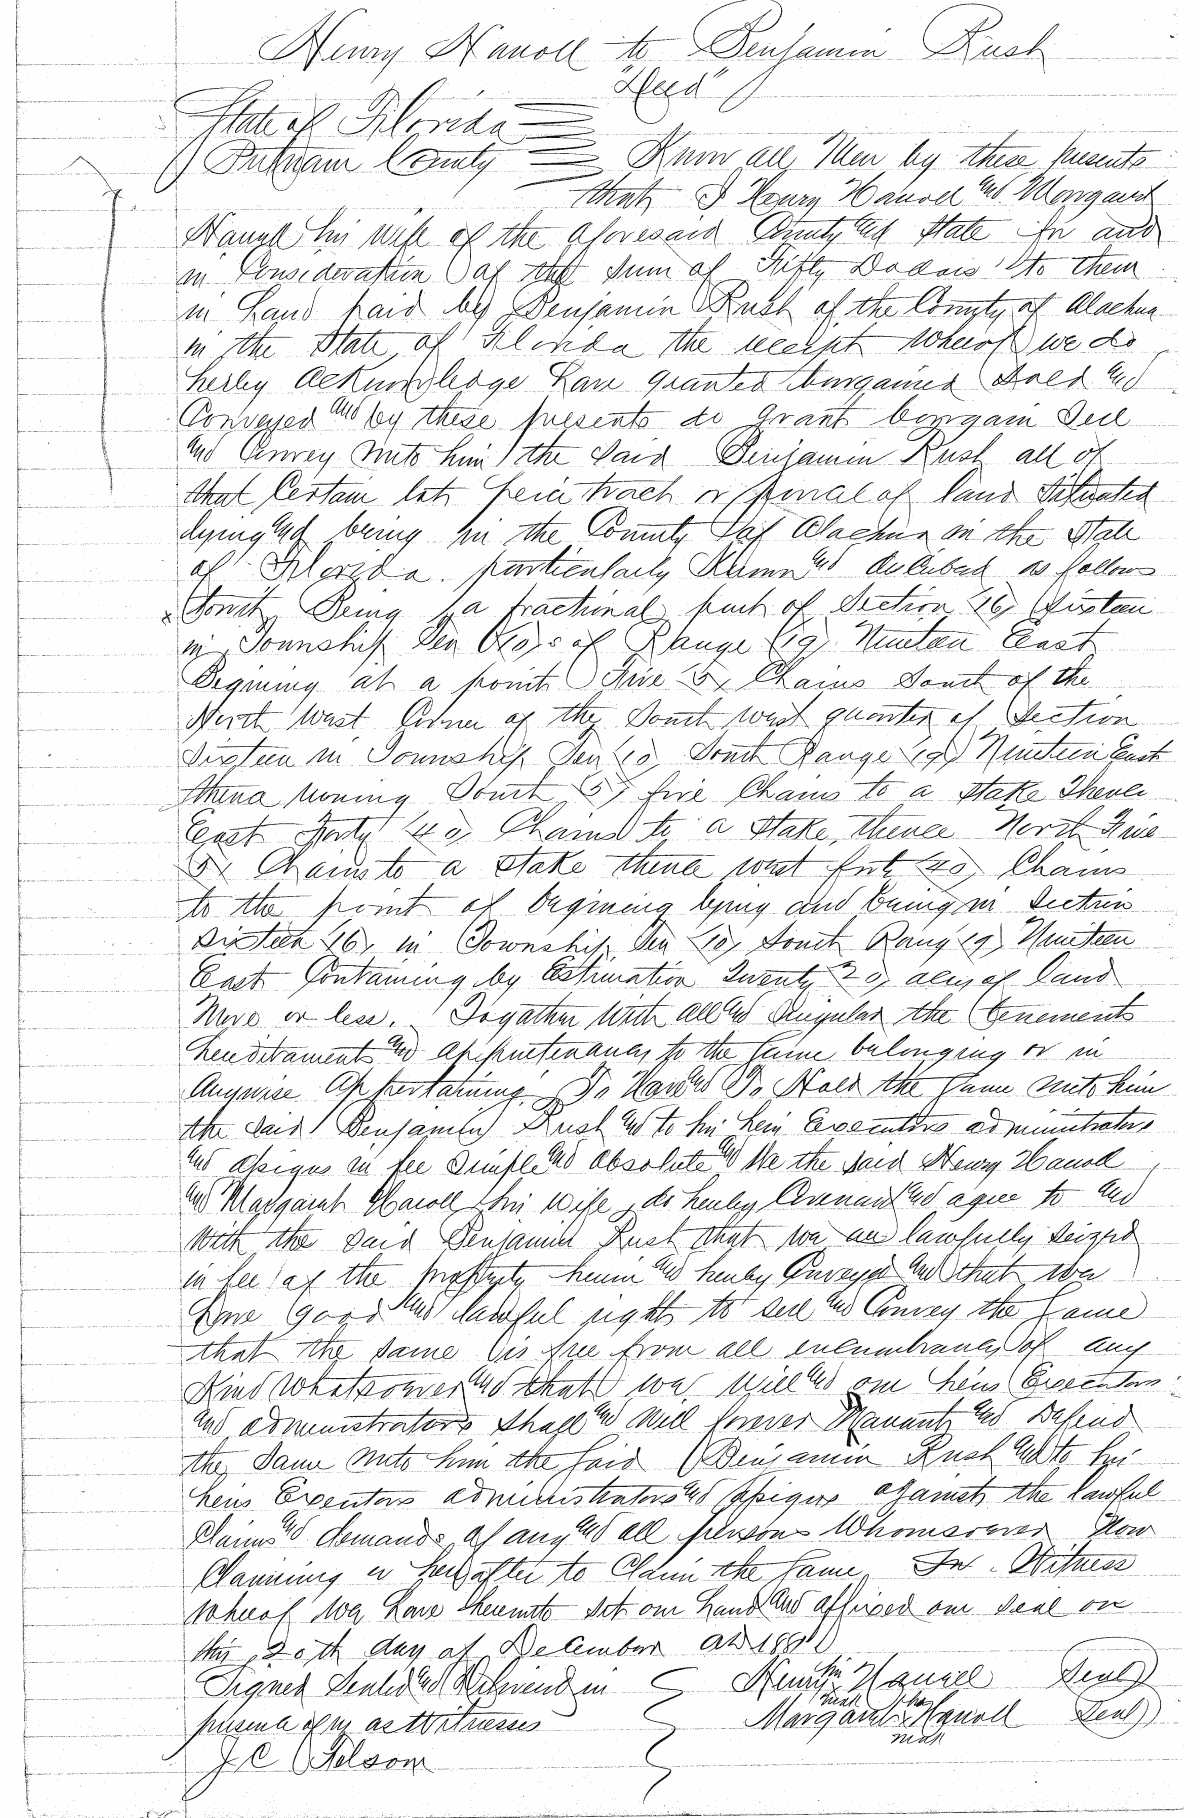 Henry Hanoll to Benjamin Rush
"Deed"
State of Florida
Putnam County Know all Men by these presents
that I Henry Hanoll and Morgaret
his wife of the aforesaid County and State for and
in Consideration of the sum of Fifty Dolars to them
in hand paid by Benjamin Rush of the County of Alachua
in the State of Florida the receipt whereof we do
herby acknowledge have granted bargained Sold and
Conveyed and by these presents do grant bargain Sell
and Convey unto him the said Benjamin Rush all of
that Certain lot, trach or of land Situated
lying and being in the County of Alachua in the State
of Florida. particularly Known and as follows
Being a fractional part of Section 16, Sixteen
in Township Ten (10) S of Range (19) Nineteen East
Begining at a point Five 5, Chains South of the
North West Corner of the South west quarter of Section
Sixteen in Township Ten (10) South Range (19) Nineteen East
South (5) five Chains to a stake Thence
East Forty (40) Chains to a stake, thence North Five
5, Chains to a stake thence west (40) Chains
to the point of begining lying and being in Section
Sixteen 16, in Township Ten (10) South Rang 19, Nineteen
East Containing by Estimation Twenty 20, of land
More or less. Togather with all and Singular the tenements
and appurtenances to the same belonging or in
Anywise Appertaining. To Have and To Hold the same unto him
the said Benjamin Rush and to his heirs Executors administrators
and assigns in fee Simple and absolute and We the said Henry Hanoll
and Margaret Hanoll his wife, do herby Covenant and agree to and
with the said Benjamin Rush that we are lawfully seized
in fee of the property herein and herby Conveyed and that we
have good and lawful right to sell and Convey the same
that the same is free from all encumbrances of any
Kind Whatsoever and that we will and our heirs Executors
and administrators shall and will forever Warrant and Defend
the same unto him the said Benjamin Rush and to his
heirs Executors administrators and assigns against the lawful
Claims and demands of any and all persons Whomsoever Now
Claiming or hereafter to Claim the same. In Witness
Whereof We have hereunto set our hand and affixed our seal on
this 20th day of December AD
Signed Sealed and in Henry his Hanoll (Seal)
mark
presence of us as Witnesses Margaret her Hanoll (Seal)
mark
J C